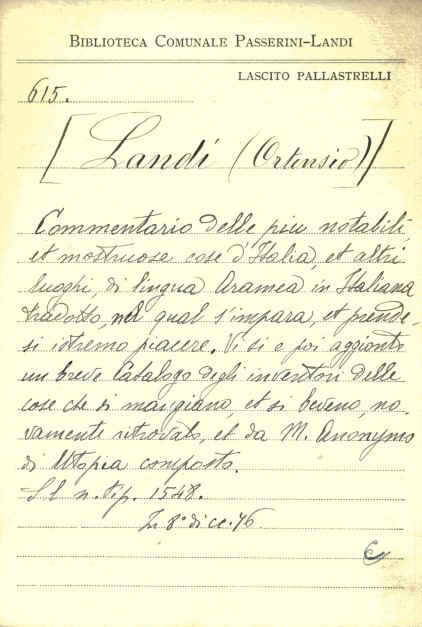 BIBLIOTECA COMUNALE PASSERINI-LANDI
LASCITO PALLASTRELLI
615.
[Landi (Ortensio)]
Commentario delle piu notabili,
et mostruose cose d'Italia, et altri
luoghi, di lingua Aramea in Italiana
tradotto, nel qual s'impara, et prende-
si istremo piacere. Vi si e poi aggionto
un breve Catalogo degli inventori delle
cose che si mangiano, et si beveno, no-
vamente ritrovato, et da M. Anonymo
di Utopia composto.
S. l. n. tip. 1548.
In 8° di cc. 76